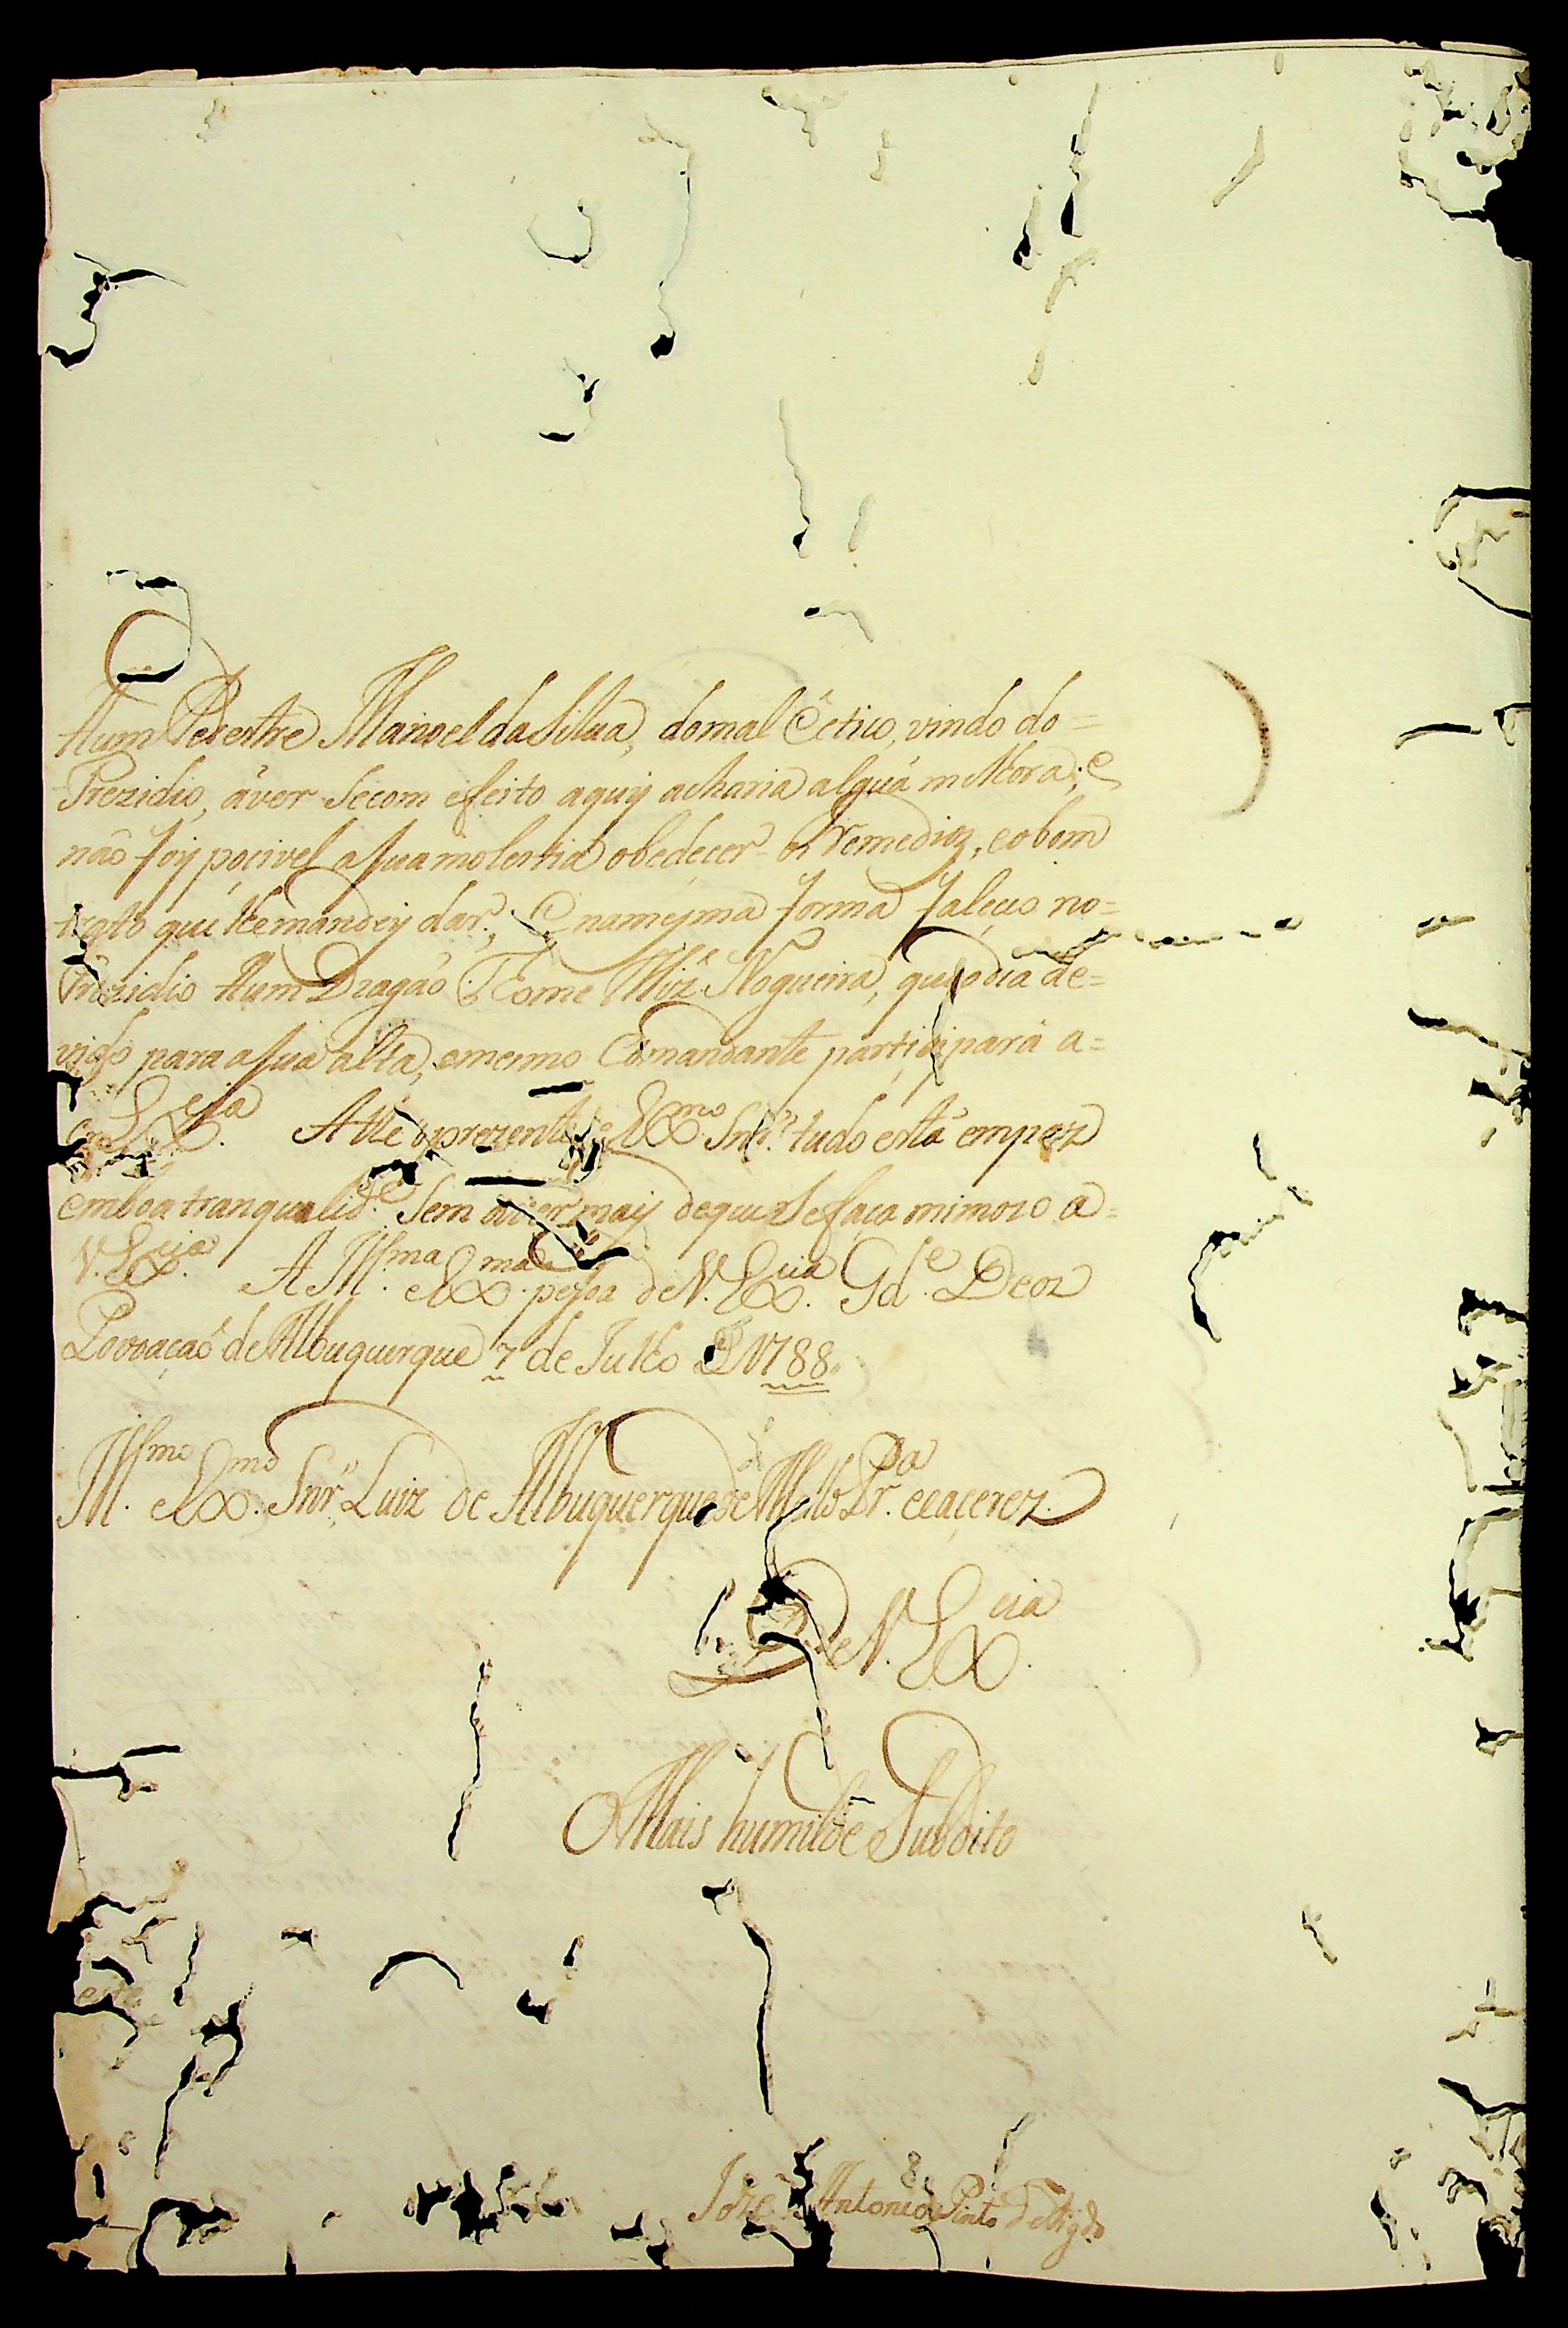 Hum Pedestre Manoel da Silua, do mal Ectico, vindo do=
Prezidio, áver Secom efeito aquy acharia algua milhora; e
não foy pocivel a sua molestia obedecer os remedioz, eobom
trato qui lhemandey dar; E namesma forma faleçeo no=
Prezidio Hum Dragão Thome Miz Nogueira, quiodia de=
vido para asua alta, omesmo Comandante partiçipará a=
Ex.cia Athe oprezente Ex.mo Snr. tudo está empaz
emboa tranqualid.e Sem aver may dequi Sefaça mimozo a=
V. Ex.cia A Ill.ma eEx.ma pesoa deV. Ex.cia Gd.e Deoz
Povoação de Albuquerque 7 de Julho D 1788.
Ill.mo eEx.mo Snr. Luiz de Albuquerque de Mello Pr.a ecaçerez.
De V. Ex.cia
OMais humilde Subdito
Joze Antonio Pinto